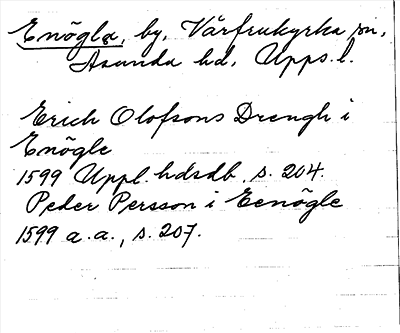 Enögla, by, Vårfrukyrka sn,
Åsunda hd, Upps. l.
Erich Olofsons Drengh i
Enögle
1599 Uppl. hdsdb, s. 204.
Peder Persson i Eenögle
1599 a.a., s. 207.